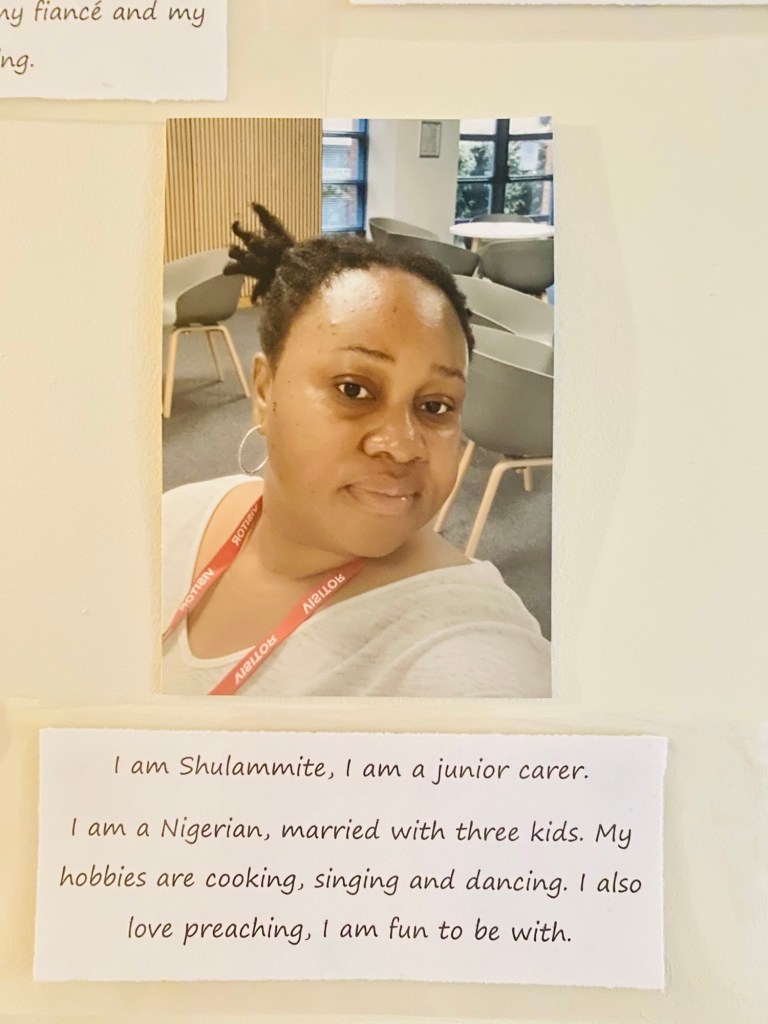 my fiancé and my
ing.
VISITOR
VISITOR
VISITOR
VISITOR
I am Shulammite, I am a junior carer.
I am a Nigerian, married with three kids. My
hobbies are cooking, singing and dancing. I also
love preaching, I am fun to be with.